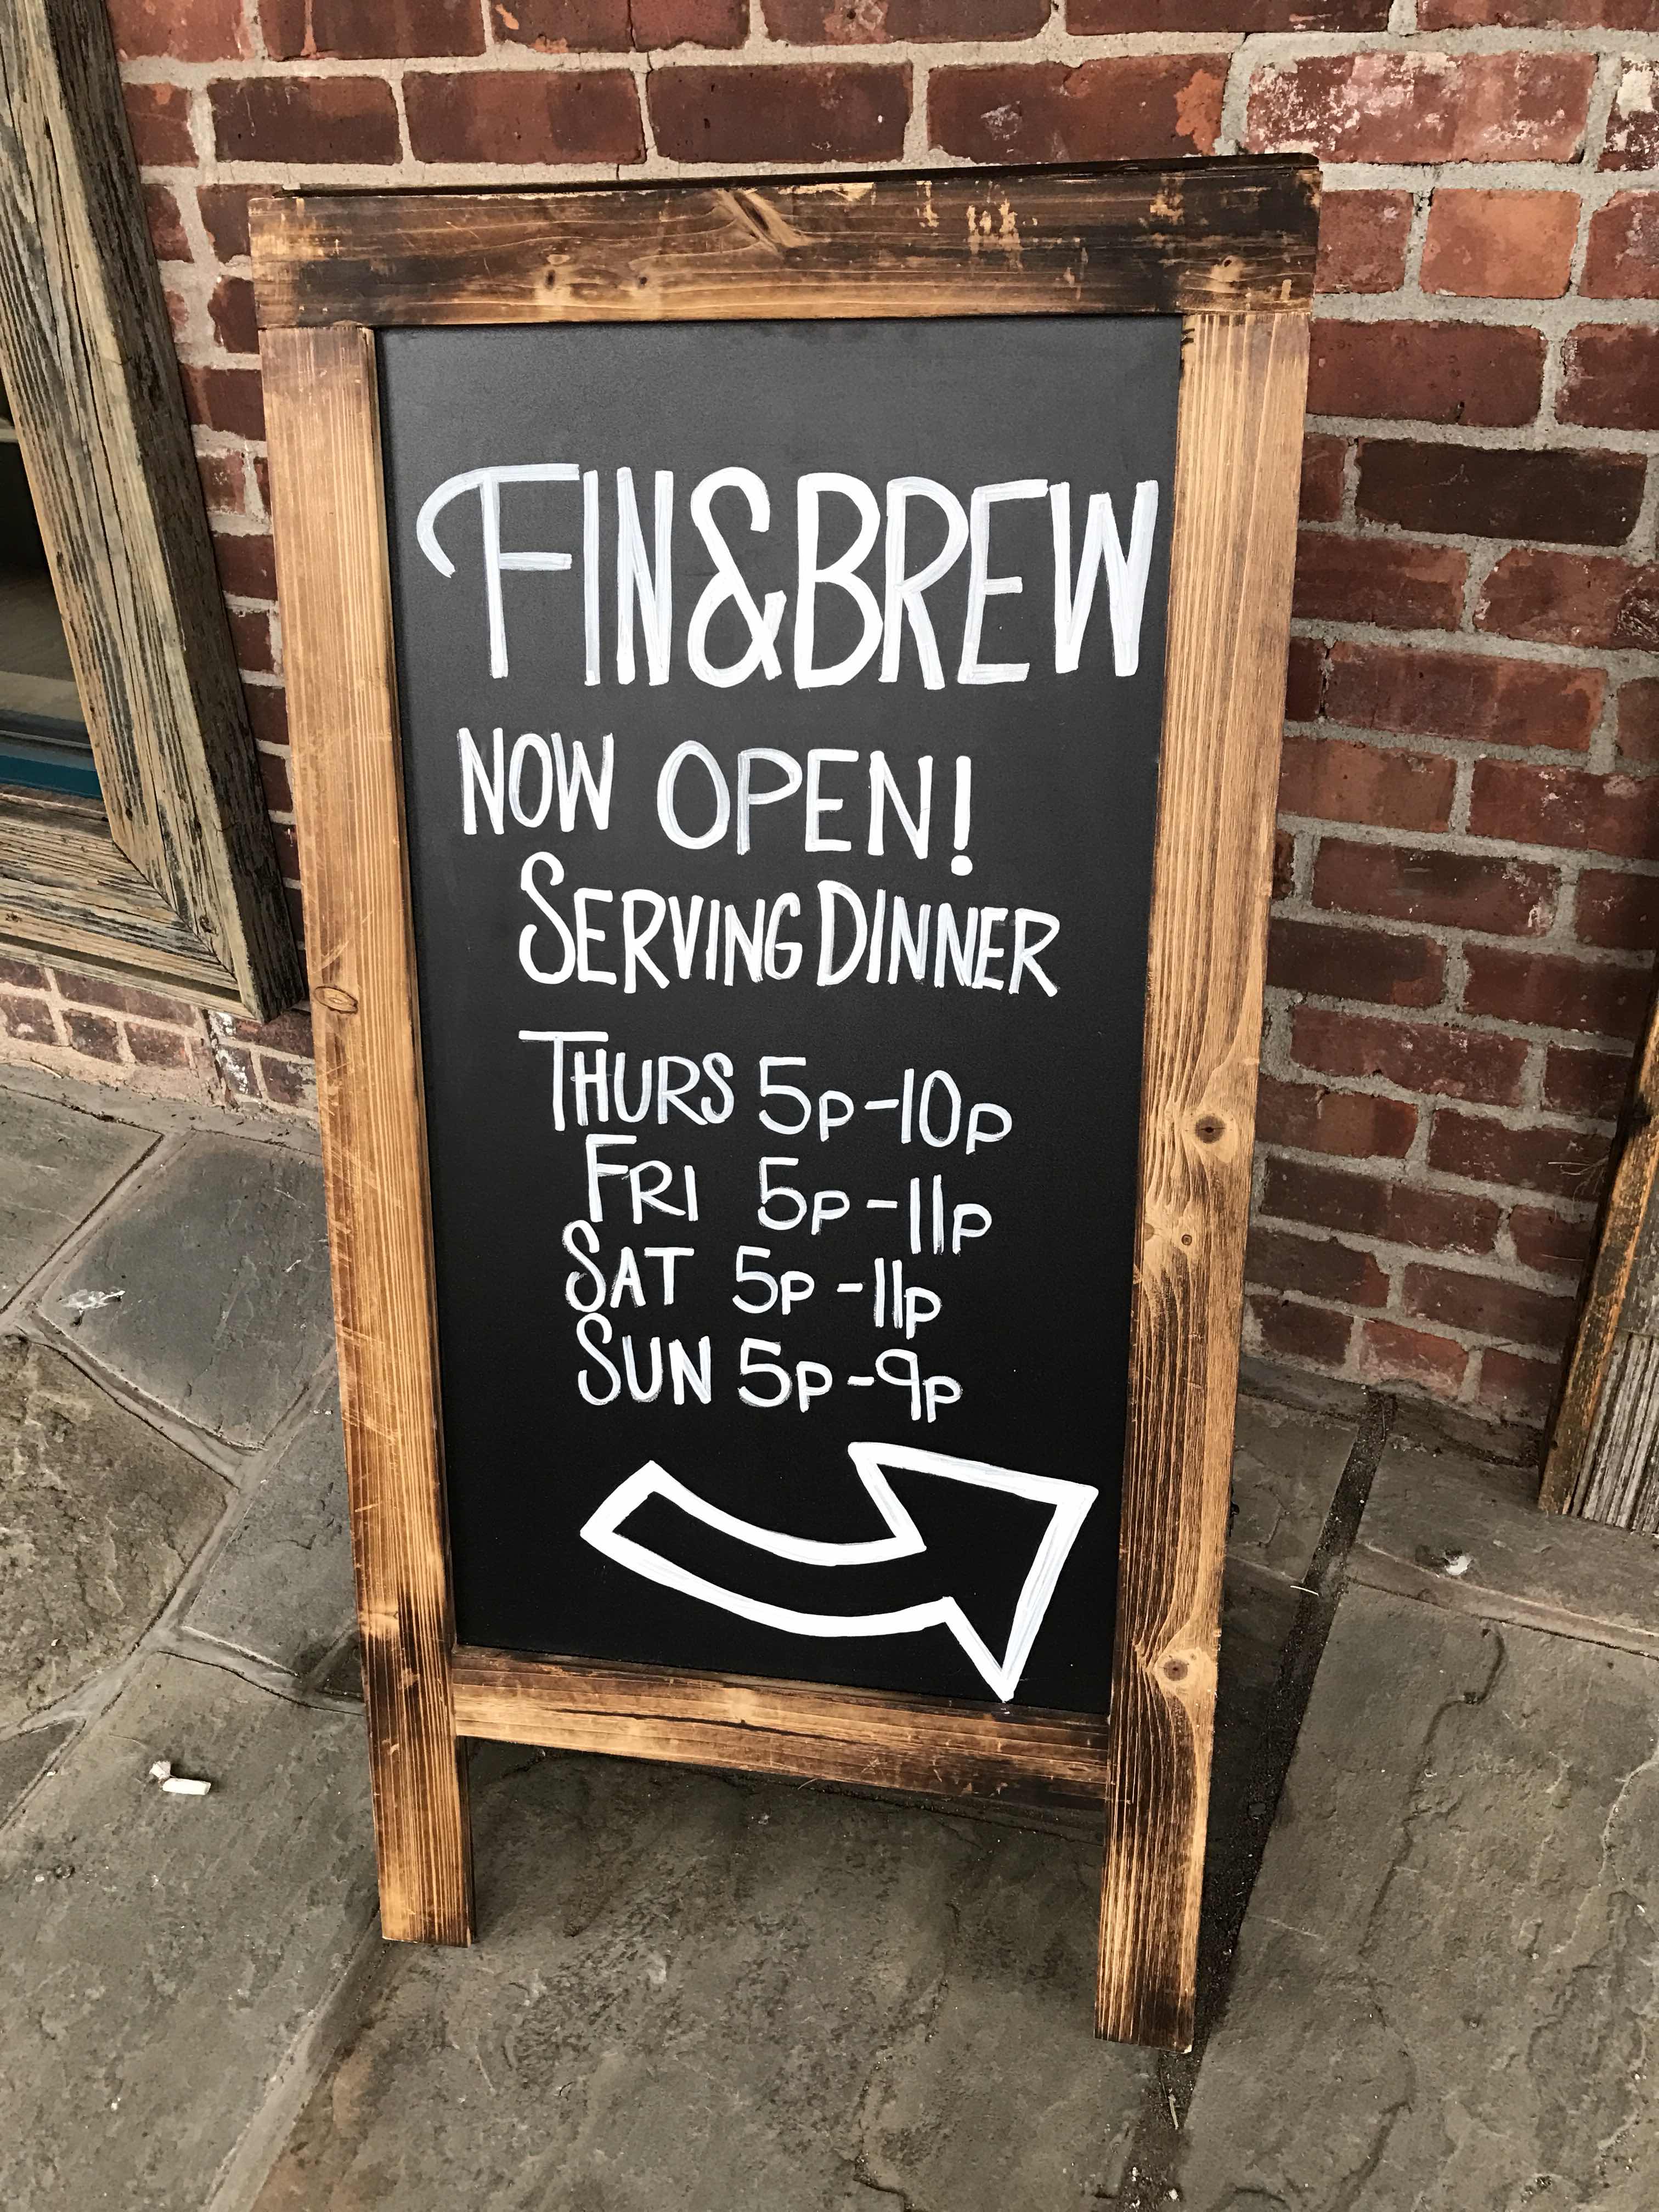 FIN&BREW
NOW OPEN!
SERVING DINNER
THURS 5P-10P
FRI 5P-11P
SAT 5P-11P
SUN 5P-9P